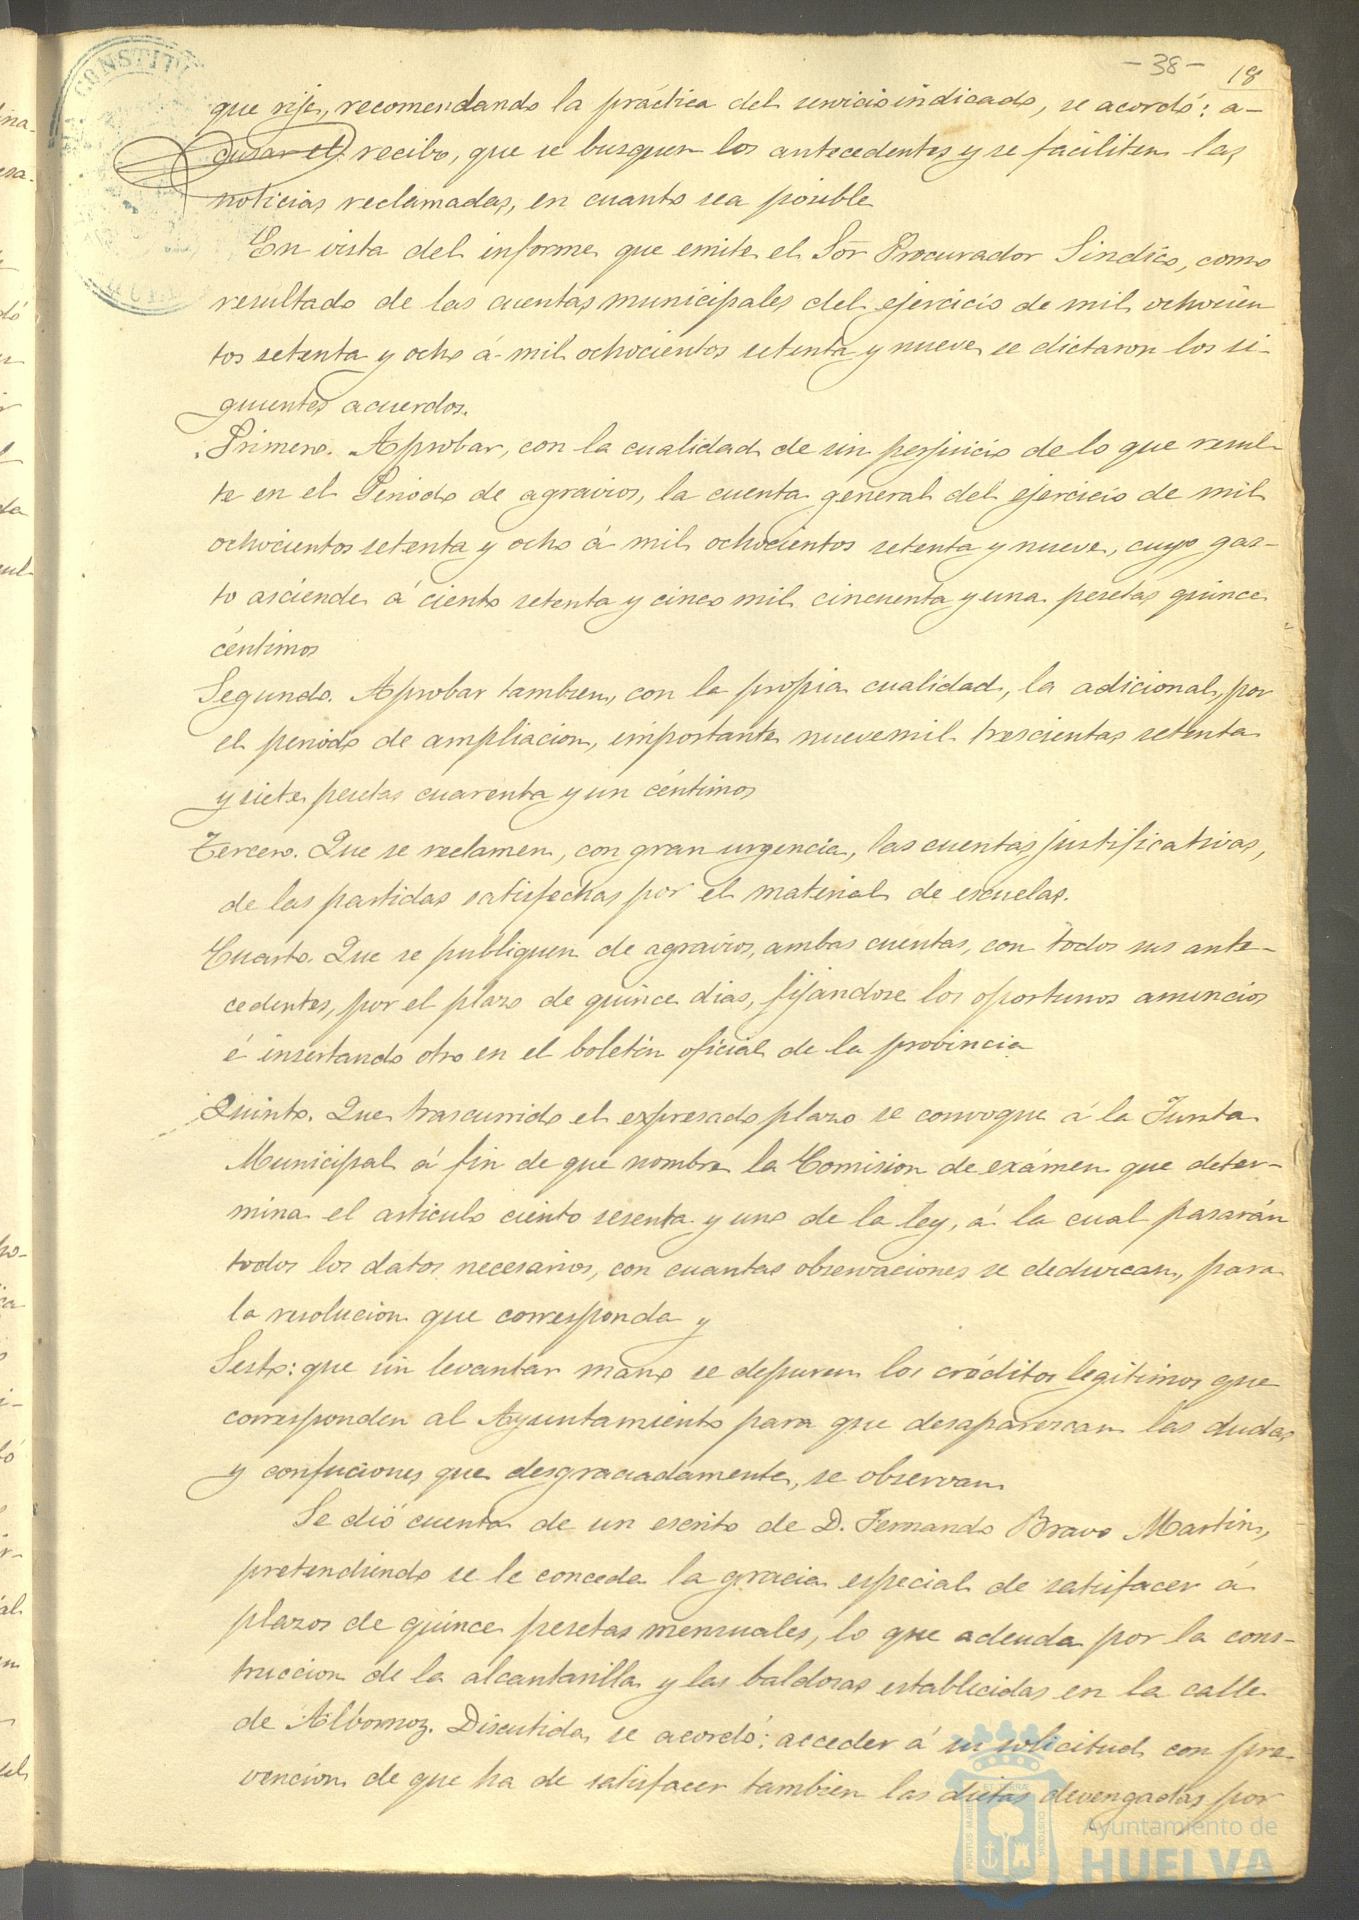 -38- 18
que rije, recomendando la práctica del servicio indicado, se acordó: a-
cusar el recibo, que se busquen los antecedentes y se faciliten las
noticias reclamadas, en cuanto sea posible
En vista del informe que emite el Sor Procurador Sindico, como
resultado de las cuentas municipales del ejercicio de mil ochocien
tos setenta y ocho á mil ochocientos setenta y nueve se dictaron los si-
guientes acuerdos.
Primero. Aprobar, con la cualidad de sin perjuicio de lo que resul-
te en el Periodo de agravios, la cuenta general del ejercicio de mil
ochocientos setenta y ocho á mil ochocientos setenta y nueve, cuyo gas-
to asciende á ciento setenta y cinco mil cincuenta y una pesetas quince
céntimos
Segundo. Aprobar tambien, con la propia cualidad, la adicional, por
el periodo de ampliacion, importante nuevemil trescientas setenta
y siete pesetas cuarenta y un céntimos
Tercero. Que se reclamen, con gran urgencia, las cuentas justificativas,
de las partidas satisfechas por el material de escuelas.
Cuarto. Que se publiquen de agravios, ambas cuentas, con todos sus ante-
cedentes, por el plazo de quince dias, fijandose los oportunos anuncios
é insertando otro en el boletin oficial de la provincia
Quinto. Que trascurrido el expresado plazo se convoque á la Junta
Municipal á fin de que nombre la Comision de exámen que deter-
mina el articulo ciento sesenta y uno de la ley, á la cual pasarán
todos los datos necesarios, con cuantas observaciones se deduzcan, para
la resolucion que corresponda y
Sesto: que sin levantar mano se depuren los créditos legitimos que
corresponden al Ayuntamiento para que desaparezcan las dudas
y confuciones que desgraciadamente, se observan
Se dió cuenta de un escrito de D. Fernando Bravo Martin,
pretendiendo se le conceda la gracia especial de satisfacer á
plazos de quince pesetas mensuales, lo que adeuda por la cons-
truccion de la alcantarilla y las baldosas establecidas en la calle
de Albornoz. Discutida, se acordó: acceder á su solicitud con pre-
vencion de que ha de satisfacer tambien las dietas devengadas por
Ayuntamiento de
HUELVA